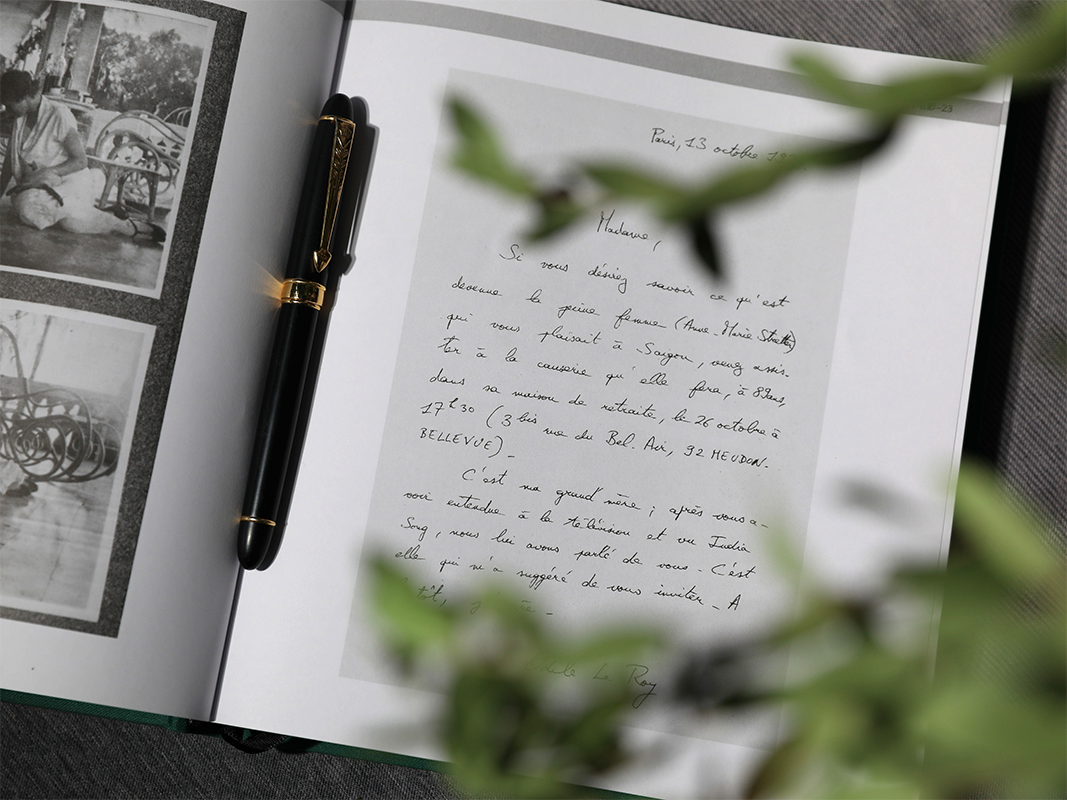 Paris, 13 octobre
Madame,
Si vous désirez savoir ce qu'est
devenue la jeune femme (Anne-Marie Stretter)
qui vous plaisait à Saïgon, venez assis-
ter à la causerie qu'elle fera, à 89 ans,
dans sa maison de retraite, le 26 octobre à
17h30 (3 bis rue du Bel-Air, 92 MEUDON-
BELLEVUE)_
C'est ma grand'mère ; après vous a-
voir entendue à la télévision et vu India
Song, nous lui avons parlé de vous_ C'est
elle qui m'a suggéré de vous inviter_ A
Le Roy